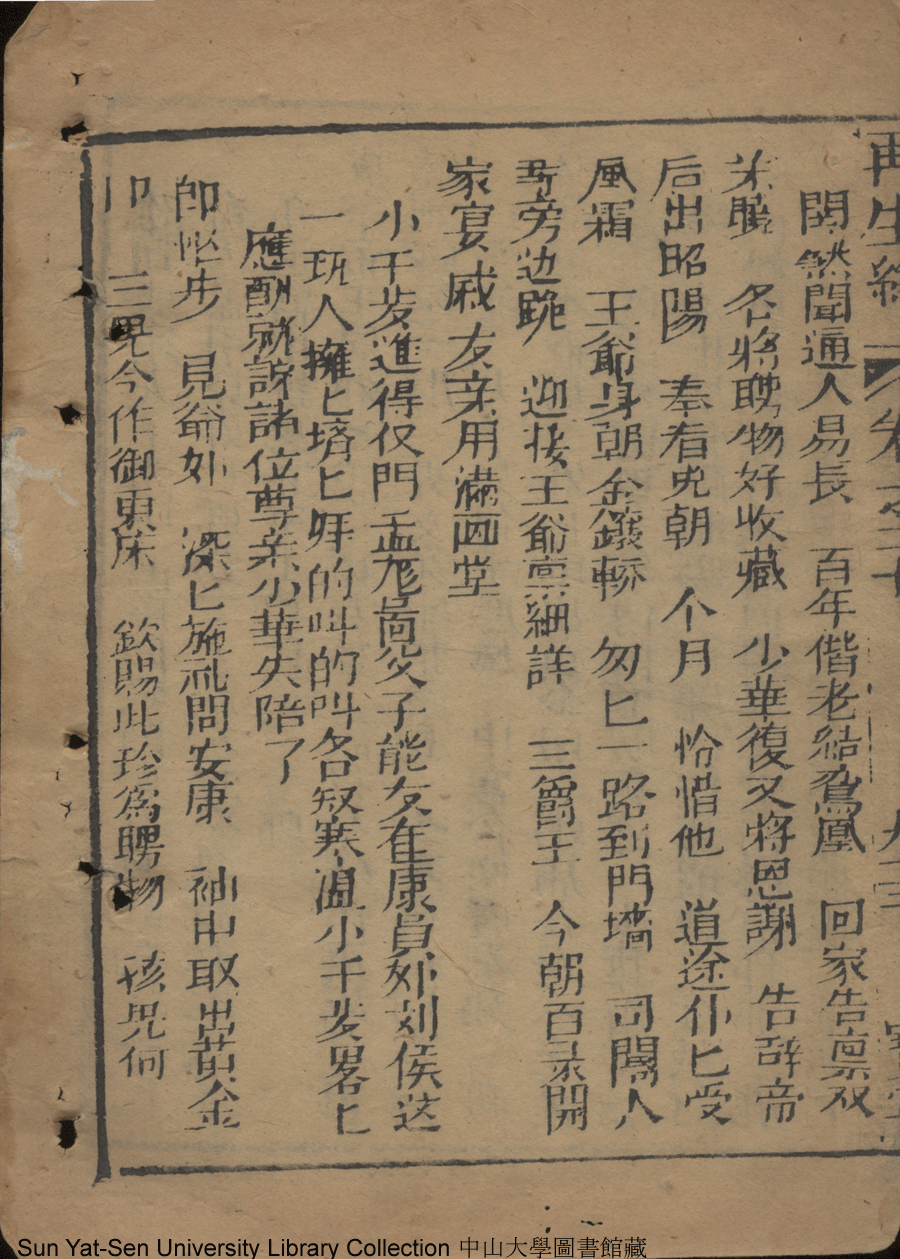 再生緣 卷之
聞通人易長 百年偕老結鳥凰 回家告禀双
名將聘物好收藏 少華復又將恩謝 告辞帝
后出昭陽 奉看皃朝 个月 恰惜他 道途仆匕受
風霜 王爺身朝金鑲轎 匆匕一路到門墻 司閽人
旁边跪 迎接王爺禀細詳 三爵王 今朝百录開
家宴戚友亲用滿四堂
小千歲進得仪門 父子能友 康員 刘侯
一玩人擁匕擠匕 的叫的叫各叙寒溫小千歲畧匕
應酬就說諸位尊亲少華失陪了
即 步 見爺 深匕施礼問安康 袖中取出黃金
印 三 今作御東床 欽賜此珍為聘物 孩兒何
Sun Yat-Sen University Library Collection 中山大學圖書館藏